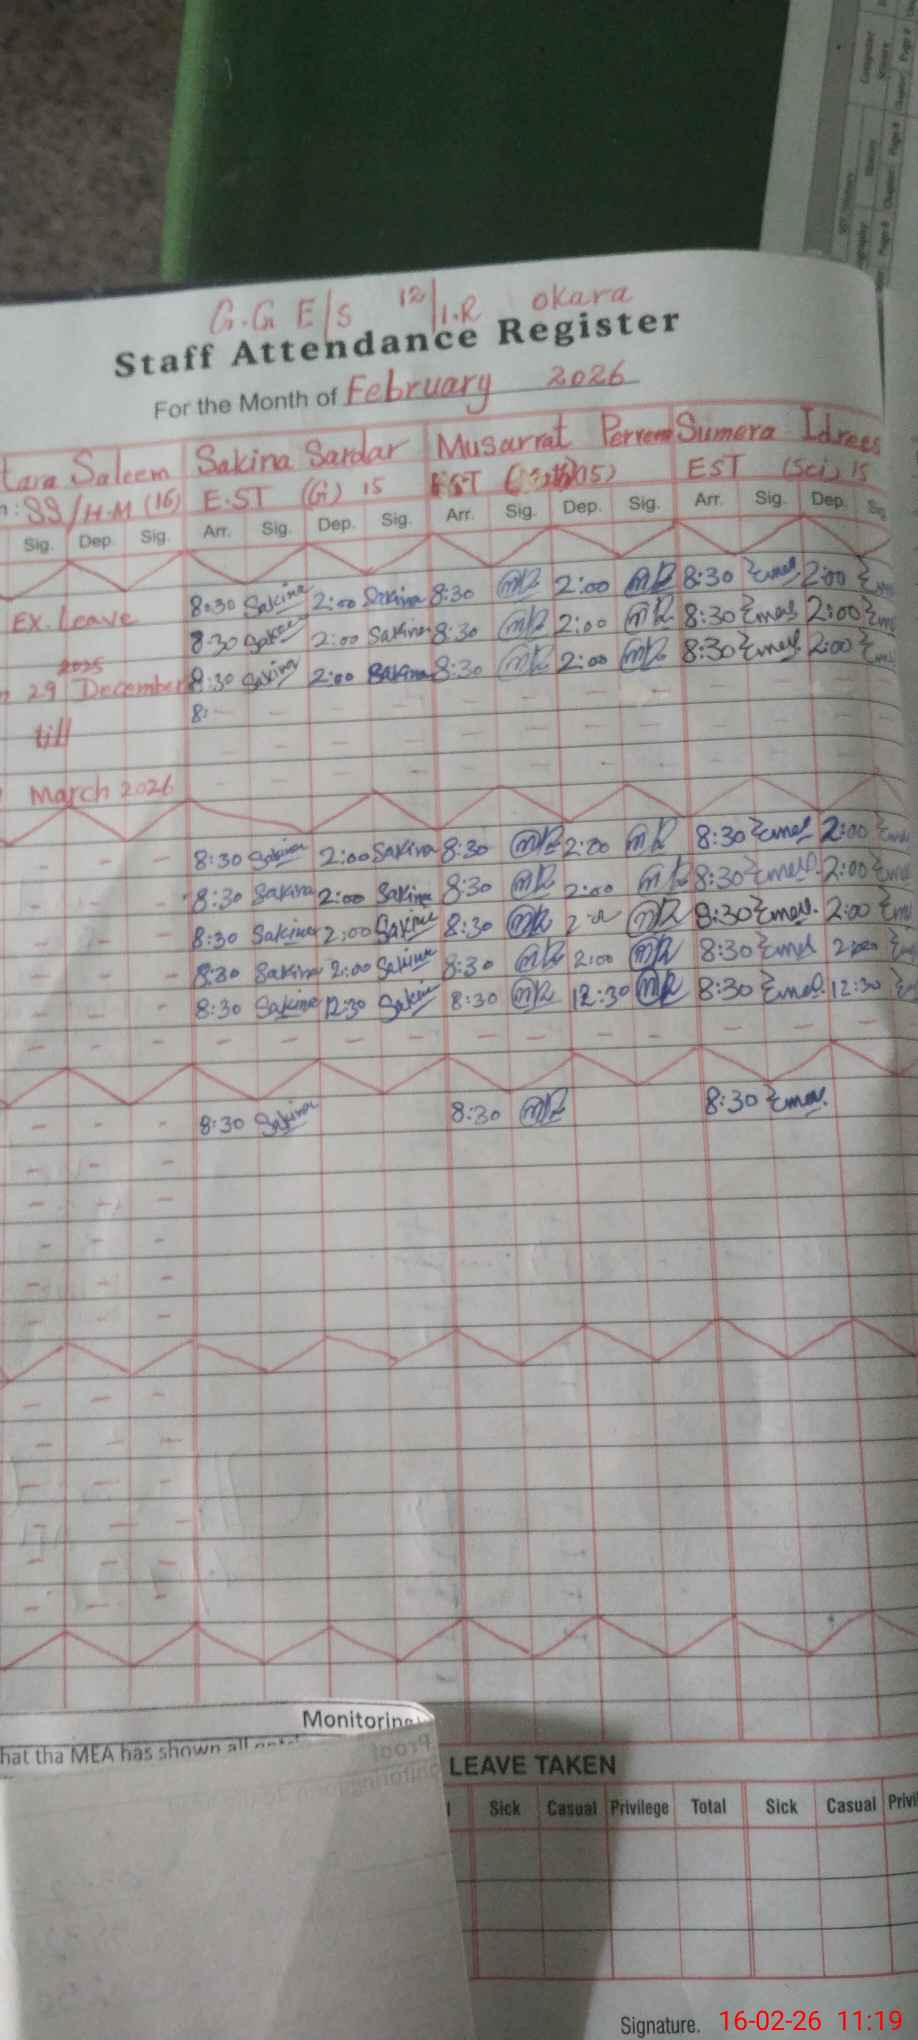 G.G E/S 12/1.R okara
Staff Attendance Register
For the Month of February 2026
tara Saleem Sakina Sardar Musarrat Perreen Sumera Idrees
: SS/H.M (16) E.ST (G) 15 EST 15) EST (Sci) 15
Sig. Dep. Sig. Arr. Sig. Dep. Sig. Arr. Sig. Dep. Sig. Arr. Sig. Dep. Sig
Ex. Leave 8:30 Sakina 2:00 Sakina 8:30 MR 2:00 MR 8:30 2:00
8:30 Sakina 2:00 Sakina 8:30 MR 2:00 MR 8:30 2:00
2025
29 December 8:30 Sakina 2:00 Sakina 8:30 MR 2:00 MR 8:30 2:00
till 8:
March 2026
8:30 Sakina 2:00 Sakina 8:30 MR 2:00 MR 8:30 2:00
8:30 Sakina 2:00 Sakina 8:30 MR 2:00 MR 8:30 2:00
8:30 Sakina 2:00 Sakina 8:30 MR MR 8:30 2:00
8:30 Sakina 2:00 Sakina 8:30 MR 2:00 MR 8:30 2:00
8:30 Sakina 12:30 Sakina 8:30 MR 12:30 MR 8:30 12:30
8:30 Sakina 8:30 MR 8:30
Monitoring
hat tha MEA has shown all
LEAVE TAKEN
Sick Casual Privilege Total Sick Casual Privi
Signature.
16-02-26 11:19